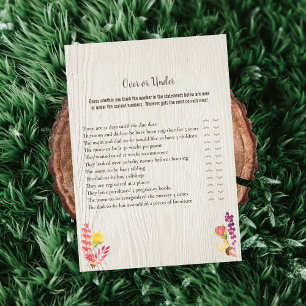 Over or Under
Guess whether you think the number in the statements below are over
or under the correct numbers. Whoever gets the most correct wins!
There are 12 days until the due date
The mom and dad-to-be have been together for 5 years
The mom and dad-to-be would like to have 3 children
The mom-to-be is 30 weeks pregnant
They waited until 17 weeks to announce
They looked over 10 baby names before choosing
The mom-to-be has 1 sibling
The dad-to-be has 2 siblings
They are registered at 2 places
They have purchased 3 pregnancy books
The mom-to-be reorganized the nursery 2 times
The dad-to-be has assembled 4 pieces of furniture